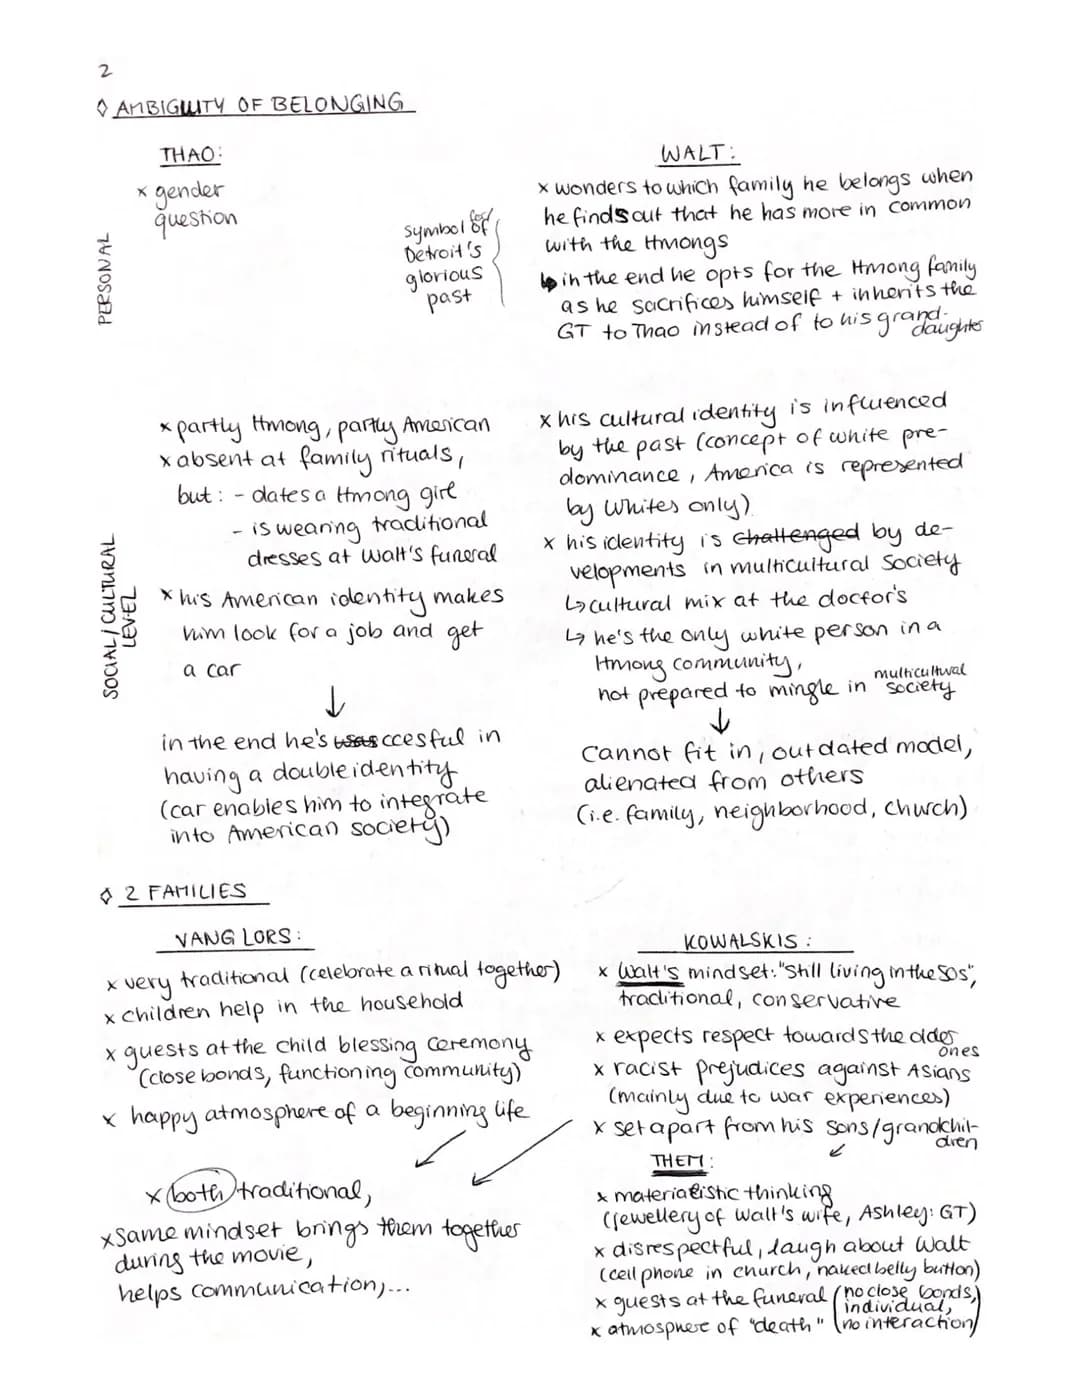 2
◊ AMBIGUITY OF BELONGING
THAO:
x gender
question
PERSONAL
symbol of/for
Detroit's
glorious
past
WALT:
x wonders to which family he belongs when
he finds out that he has more in common
with the Hmongs
↳ in the end he opts for the Hmong family
as he sacrifices himself + inherits the
GT to Thao instead of to his grand-
daughter
SOCIAL/CULTURAL
LEVEL
x partly Hmong, partly American
x absent at family rituals,
but: - dates a Hmong girl
- is wearing traditional
dresses at Walt's funeral
x his American identity makes
him look for a job and get
a car
↓
in the end he's succesful in
having a double identity
(car enables him to integrate
into American society)
x his cultural identity is influenced
by the past (concept of white pre-
dominance, America is represented
by Whites only)
x his identity is challenged by de-
velopments in multicultural society
↳ cultural mix at the doctor's
↳ he's the only white person in a
Hmong community,
not prepared to mingle in multicultural society
↓
cannot fit in, outdated model,
alienated from others
(i.e. family, neighborhood, church)
◊ 2 FAMILIES
VANG LORS:
x very traditional (celebrate a ritual together)
x children help in the household
x guests at the child blessing ceremony
(close bonds, functioning community)
x happy atmosphere of a beginning life
x both traditional,
x same mindset brings them together
during the movie,
helps communication,...
KOWALSKIS:
x Walt's mindset: "still living in the 50s",
traditional, conservative
x expects respect towards the older
ones
x racist prejudices against Asians
(mainly due to war experiences)
x set apart from his sons/grandchil-
dren
THEM:
x materialistic thinking
(jewellery of Walt's wife, Ashley: GT)
x disrespectful, laugh about Walt
(cell phone in church, naked belly button)
x guests at the funeral (no close bonds,
individual,
x atmosphere of "death" no interaction)